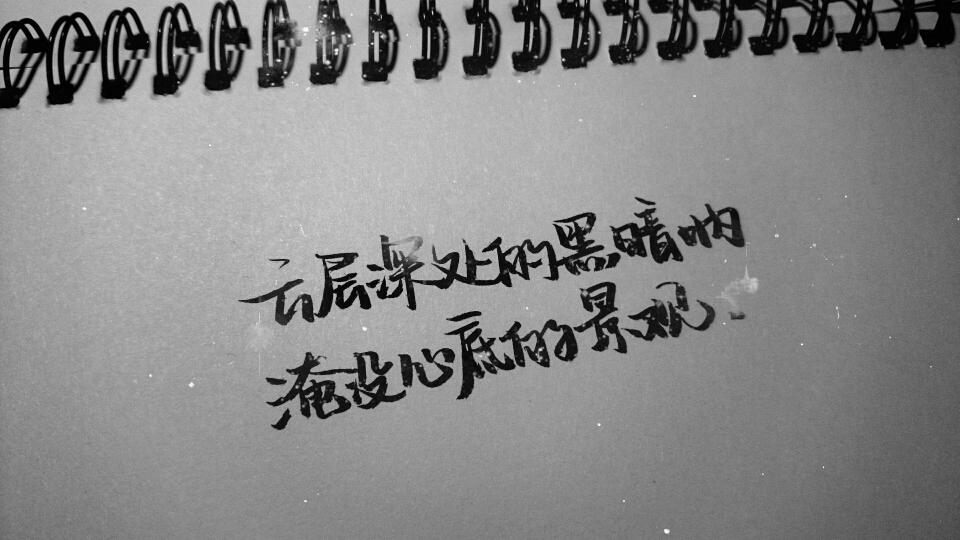 云层深处的黑暗呐
淹没心底的景观.